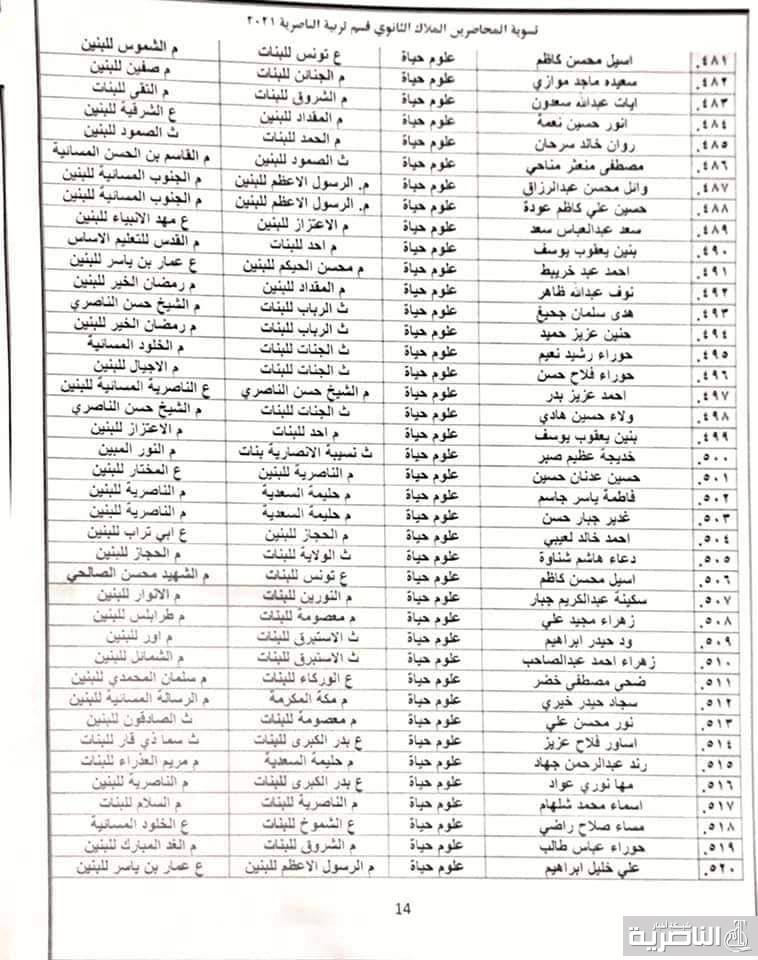 تسوية المحاضرين الملاك الثانوي قسم تربية الناصرية ٢٠٢١
٤٨١. اسيل محسن كاظم علوم حياة ع تونس للبنات م الشموس للبنين
٤٨٢. سعيده ماجد موازي علوم حياة م الجنائن للبنات م صفين للبنين
٤٨٣. ايات عبدالله سعدون علوم حياة م الشروق للبنات م النقي للبنات
٤٨٤. انور حسين نعمة علوم حياة م المقداد للبنين ع الشرقية للبنين
٤٨٥. روان خالد سرحان علوم حياة م الحمد للبنات ث الصمود للبنين
٤٨٦. مصطفى منعثر مناحي علوم حياة ث الصمود للبنين م القاسم بن الحسن المسائية
٤٨٧. وائل محسن عبدالرزاق علوم حياة م. الرسول الاعظم للبنين م الجنوب المسائية للبنين
٤٨٨. حسين علي كاظم عودة علوم حياة م. الرسول الاعظم للبنين م الجنوب المسائية للبنين
٤٨٩. سعد عبدالعباس سعد علوم حياة م الاعتزاز للبنين ع مهد الانبياء للبنين
٤٩٠. بنين يعقوب يوسف علوم حياة م احد للبنات م القدس للتعليم الاساس
٤٩١. احمد عبد خريبط علوم حياة م محسن الحكيم للبنين ع عمار بن ياسر للبنين
٤٩٢. نوف عبدالله ظاهر علوم حياة م المقداد للبنين م رمضان الخير للبنين
٤٩٣. هدى سلمان جحيغ علوم حياة ث الرباب للبنات م الشيخ حسن الناصري
٤٩٤. حنين عزيز حميد علوم حياة ث الرباب للبنات م رمضان الخير للبنين
٤٩٥. حوراء رشيد نعيم علوم حياة ث الجنات للبنات م الخلود المسائية
٤٩٦. حوراء فلاح حسن علوم حياة ث الجنات للبنات م الاجيال للبنين
٤٩٧. احمد عزيز بدر علوم حياة م الشيخ حسن الناصري ع الناصرية المسائية للبنين
٤٩٨. ولاء حسين هادي علوم حياة ث الجنات للبنات م الشيخ حسن الناصري
٤٩٩. بنين يعقوب يوسف علوم حياة م احد للبنات م الاعتزاز للبنين
٥٠٠. خديجة عظيم صبر علوم حياة ث نسيبة الانصارية بنات م النور المبين
٥٠١. حسين عدنان حسين علوم حياة م الناصرية للبنين ع المختار للبنين
٥٠٢. فاطمة ياسر جاسم علوم حياة م حليمة السعدية م الناصرية للبنين
٥٠٣. غدير جبار حسن علوم حياة م حليمة السعدية م الناصرية للبنين
٥٠٤. احمد خالد لعيبي علوم حياة م الحجاز للبنين ع ابي تراب للبنين
٥٠٥. دعاء هاشم شناوة علوم حياة ث الولاية للبنات م الحجاز للبنين
٥٠٦. اسيل محسن كاظم علوم حياة ع تونس للبنات م الشهيد محسن الصالحي
٥٠٧. سكينة عبدالكريم جبار علوم حياة م النورين للبنات م الانوار للبنين
٥٠٨. زهراء مجيد علي علوم حياة م معصومة للبنات م طرابلس للبنين
٥٠٩. ود حيدر ابراهيم علوم حياة ث الاستبرق للبنات م اور للبنين
٥١٠. زهراء احمد عبدالصاحب علوم حياة ث الاستبرق للبنات م الشمائل للبنين
٥١١. ضحى مصطفى خضر علوم حياة ع الوركاء للبنات م سلمان المحمدي للبنين
٥١٢. سجاد حيدر خيري علوم حياة م مكة المكرمة م الرسالة المسائية للبنين
٥١٣. نور محسن علي علوم حياة م معصومة للبنات ث الصادقون للبنين
٥١٤. اساور فلاح عزيز علوم حياة ع بدر الكبرى للبنات ث سما ذي قار للبنات
٥١٥. رند عبدالرحمن جهاد علوم حياة م حليمة السعدية م مريم العذراء للبنات
٥١٦. مها نوري عواد علوم حياة ع بدر الكبرى للبنات م الناصرية للبنين
٥١٧. اسماء محمد شلهام علوم حياة م الناصرية للبنات م السلام للبنات
٥١٨. مساء صلاح راضي علوم حياة ع الشموخ للبنات ع الخلود المسائية
٥١٩. حوراء عباس طالب علوم حياة م الشروق للبنات م الغد المبارك للبنين
٥٢٠. علي خليل ابراهيم علوم حياة م الرسول الاعظم للبنين ع عمار بن ياسر للبنين
14
شبكة اخبار
الناصرية